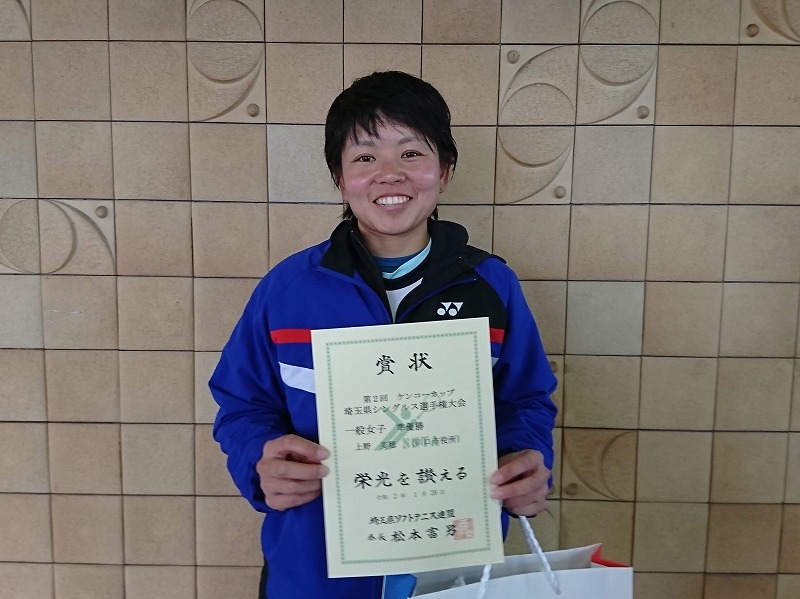 賞状
第2回 ケンコーカップ
埼玉県シングルス選手権大会
一般女子 準優勝
上野 市役所)
栄光を讃える
令和 2年 1月26日
埼玉県ソフトテニス連盟
会長 松本富男